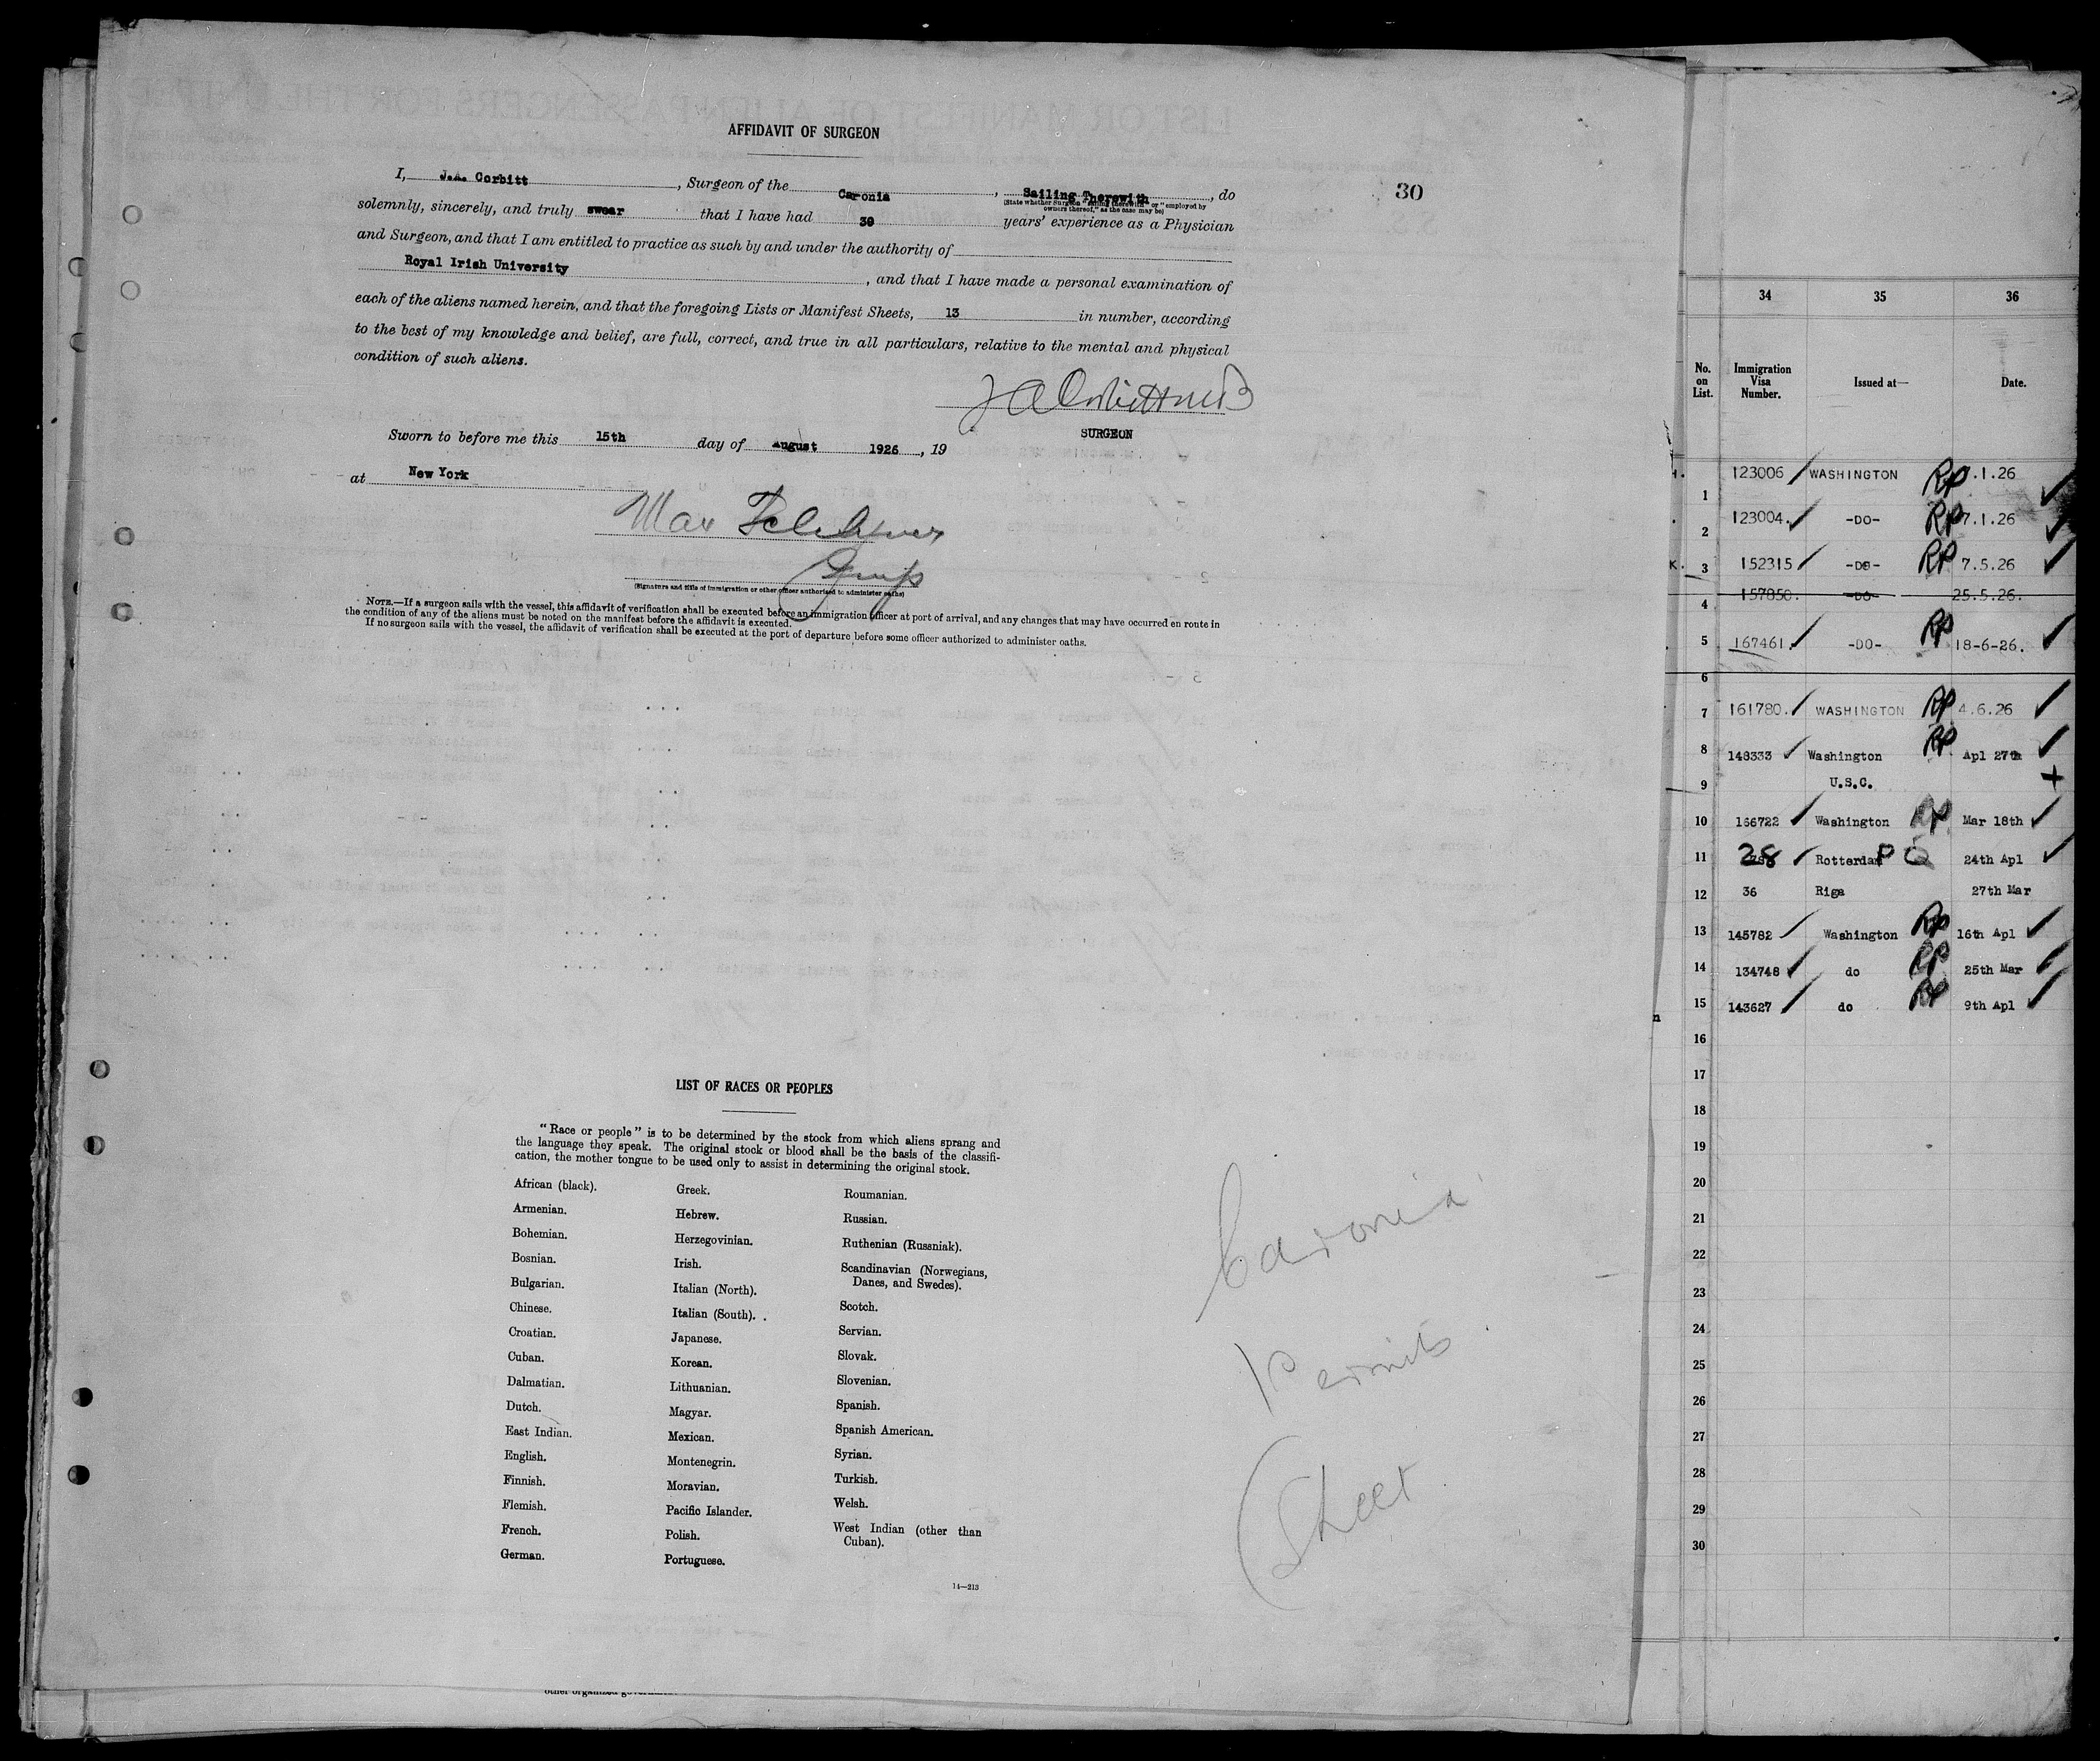 AFFIDAVIT OF SURGEON
I, J.A. Corbitt, Surgeon of the Caronia, Sailing Therewith, do
(State whether Surgeon "sailing therewith" or "employed by
owners thereof," as the case may be)
solemnly, sincerely, and truly swear that I have had 30 years' experience as a Physician
and Surgeon, and that I am entitled to practice as such by and under the authority of
Royal Irish University, and that I have made a personal examination of
each of the aliens named herein, and that the foregoing Lists or Manifest Sheets, 13 in number, according
to the best of my knowledge and belief, are full, correct, and true in all particulars, relative to the mental and physical
condition of such aliens.
SURGEON
Sworn to before me this 15th day of August 1926, 19
at New York
Max
(Signature and title of immigration or other officer authorized to administer oaths)
NOTE.—If a surgeon sails with the vessel, this affidavit of verification shall be executed before an immigration officer at port of arrival, and any changes that may have occurred en route in
the condition of any of the aliens must be noted on the manifest before the affidavit is executed.
If no surgeon sails with the vessel, the affidavit of verification shall be executed at the port of departure before some officer authorized to administer oaths.
30
LIST OF RACES OR PEOPLES
"Race or people" is to be determined by the stock from which aliens sprang and
the language they speak. The original stock or blood shall be the basis of the classifi-
cation, the mother tongue to be used only to assist in determining the original stock.
African (black).
Armenian.
Bohemian.
Bosnian.
Bulgarian.
Chinese.
Croatian.
Cuban.
Dalmatian.
Dutch.
East Indian.
English.
Finnish.
Flemish.
French.
German.
Greek.
Hebrew.
Herzegovinian.
Irish.
Italian (North).
Italian (South).
Japanese.
Korean.
Lithuanian.
Magyar.
Mexican.
Montenegrin.
Moravian.
Pacific Islander.
Polish.
Portuguese.
Roumanian.
Russian.
Ruthenian (Russniak).
Scandinavian (Norwegians,
Danes, and Swedes).
Scotch.
Servian.
Slovak.
Slovenian.
Spanish.
Spanish American.
Syrian.
Turkish.
Welsh.
West Indian (other than
Cuban).
14—213
Caronia
Permits
Sheet
34 35 36
No. on List. Immigration Visa Number. Issued at— Date.
1 123006 WASHINGTON RP .1.26
2 123004. -DO- RP 7.1.26
3 152315 -DO- RP 7.5.26
4 157850. -DO- 25.5.26.
5 167461. -DO- RP 18-6-26.
6
7 161780. WASHINGTON RP 4.6.26
8 148333 Washington RP Apl 27th
9 U.S.C. +
10 166722 Washington RP Mar 18th
11 28 Rotterdam 24th Apl
12 36 Riga 27th Mar
13 145782 Washington RP 16th Apl
14 134748 do RP 25th Mar
15 143627 do RP 9th Apl
16
17
18
19
20
21
22
23
24
25
26
27
28
29
30